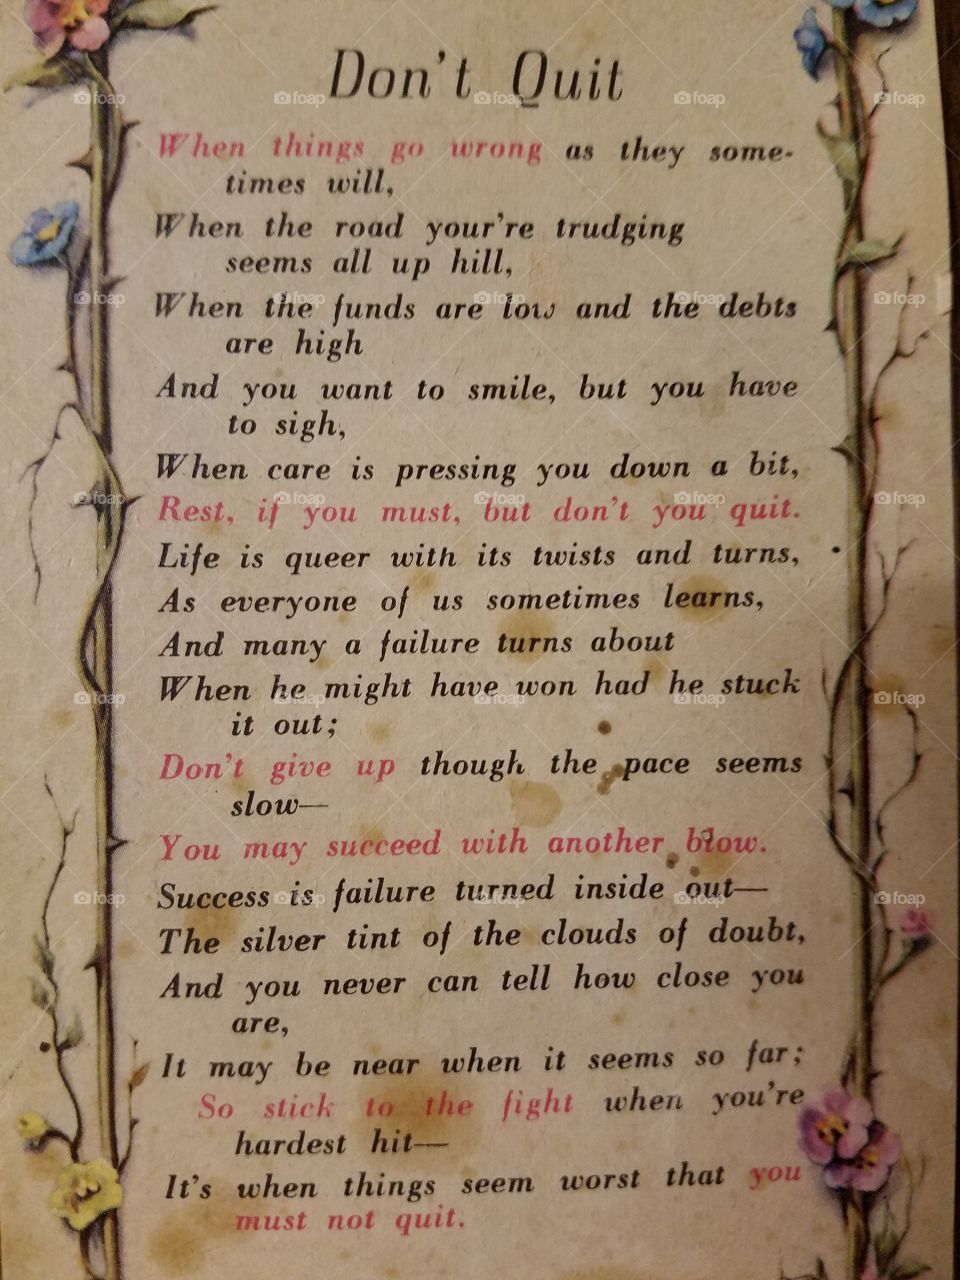 Don't Quit
When things go wrong as they some-
times will,
When the road your're trudging
seems all up hill,
When the funds are low and the debts
are high
And you want to smile, but you have
to sigh,
When care is pressing you down a bit,
Rest, if you must, but don't you quit.
Life is queer with its twists and turns,
As everyone of us sometimes learns,
And many a failure turns about
When he might have won had he stuck
it out;
Don't give up though the pace seems
slow—
You may succeed with another blow.
Success is failure turned inside out—
The silver tint of the clouds of doubt,
And you never can tell how close you
are,
It may be near when it seems so far;
So stick to the fight when you're
hardest hit—
It's when things seem worst that you
must not quit.